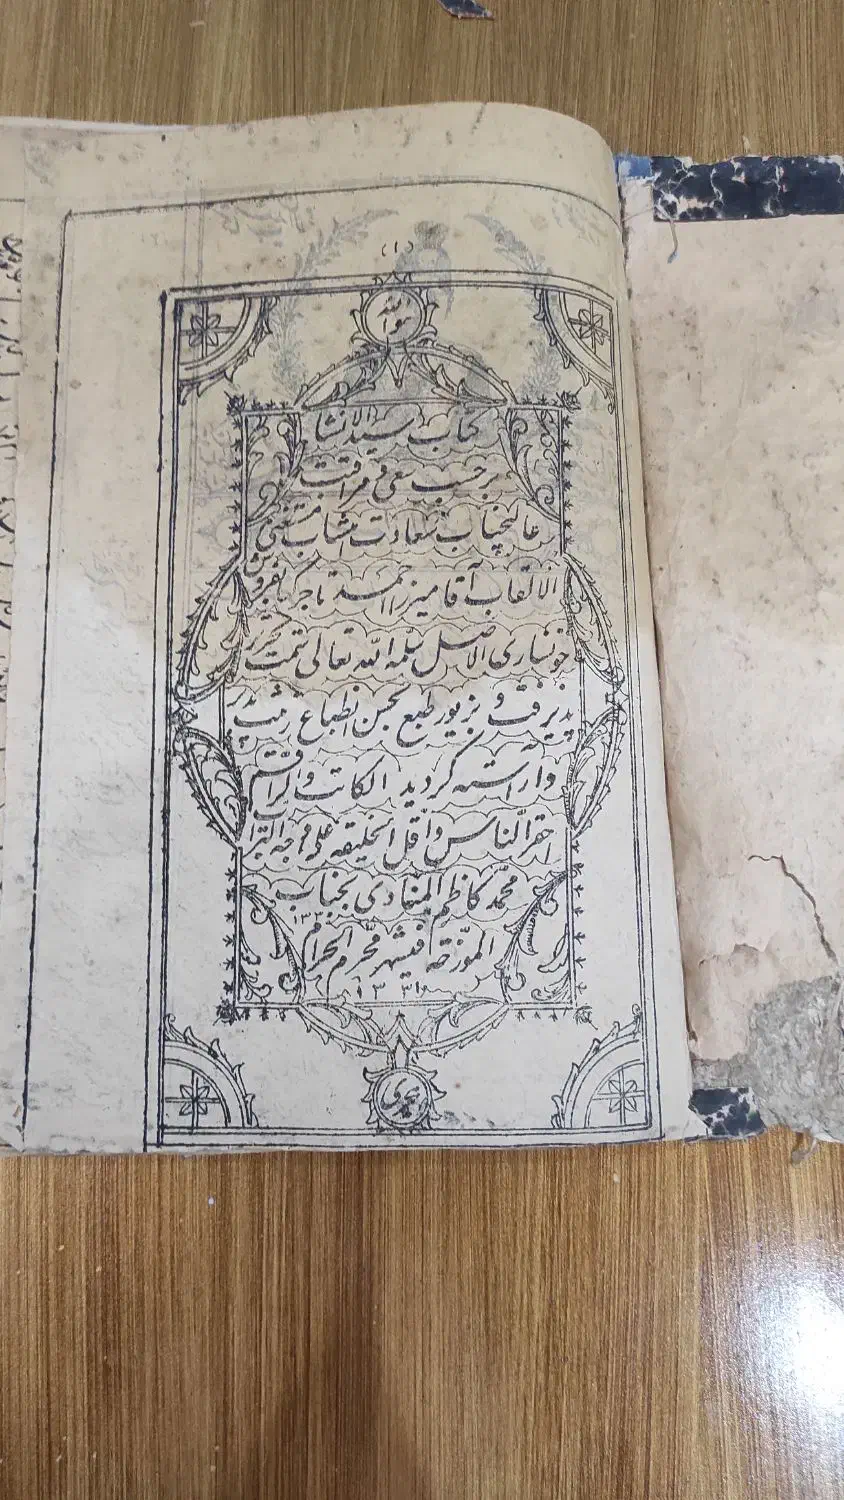 (۱)
هو الله
کتاب سید الانشا
برحسب سعی و مراقبت
عالیجناب سعادت انتساب مستغنی
الالقاب آقا میرزا احمد تاجر کتابفروش
خونساری الاصل سلمه الله تعالی سمت تحریر
پذیرفت و بزیور طبع بحسن انطباع زینت پذیر
و آراسته گردید الکاتب و الراقم
احقر الناس و اقل الخلیقه علی وجه
محمد کاظم
المورخه فیشهر محرم الحرام
۱۳۳۱